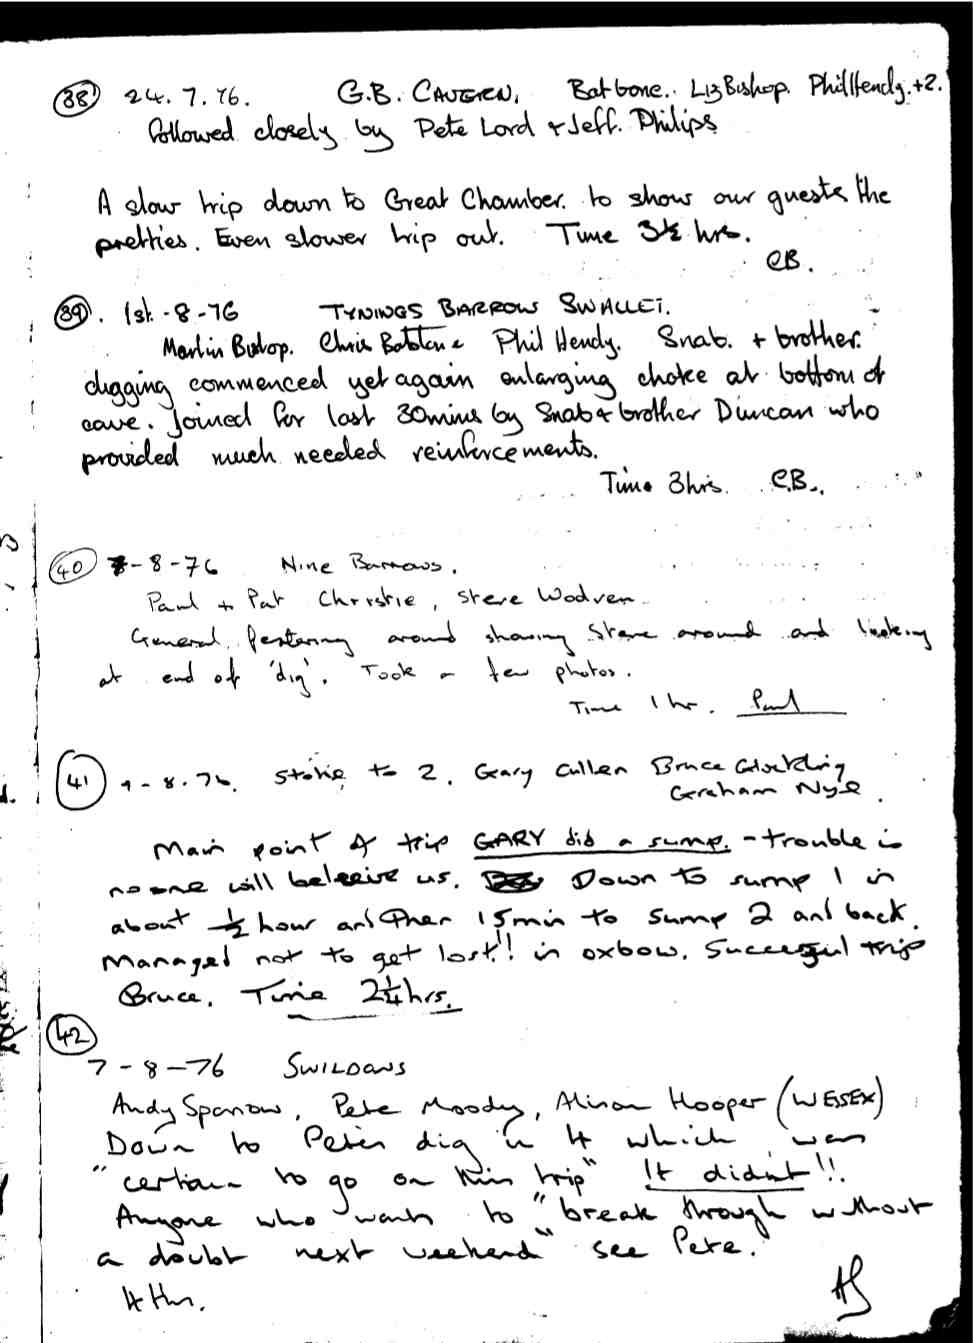 38 24.7.76. G.B. CAVERN. Batbone.. Liz Bishop. Phil Hendy.+2.
followed closely by Pete Lord + Jeff. Philips
A slow trip down to Great Chamber. to show our guests the
pretties. Even slower trip out. Time 3½ hrs.
CB.
39. 1st.-8-76 TYNINGS BARROW SWALLET.
Martin Bishop. Chris Batstone Phil Hendy. Snab. + brother.
digging commenced yet again enlarging choke at bottom of
cave. Joined for last 30mins by Snab & brother Duncan who
provided much needed reinforcements.
Time 3hrs. C.B..
40 7-8-76 Nine Barrows.
Paul + Pat Christie, Steve Wodven
General festering around showing Steve around and looking
at end of 'dig'. Took a few photos.
Time 1 hr. Paul
41 7-8.76. Stokie to 2. Gary Cullen Bruce Glockling
Graham Nye.
Main point of trip GARY did a sump. - trouble is
no one will beleeive us. Down to sump 1 in
about ½ hour and then 15min to sump 2 and back.
Managed not to get lost!! in oxbow. Successful trip
Bruce. Time 2¼hrs.
42
7-8-76 SWILDONS
Andy Sparrow, Pete Moody, Alison Hooper (WESSEX)
Down to Petes dig in 4 which was
"certian to go on this trip" It didnt!!
Anyone who wants to "break through without
a doubt next weekend" see Pete.
4 Hrs.
AS